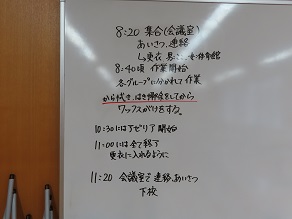 8:20 集合(会議室)
あいさつ、連絡
8:40頃 作業開始
各グループに分かれて作業
から拭き、はき掃除をしてから
ワックスがけをする。
10:30には 開始
11:00には全て終了
更衣に入れるように
11:20 会議室で連絡、あいさつ
下校